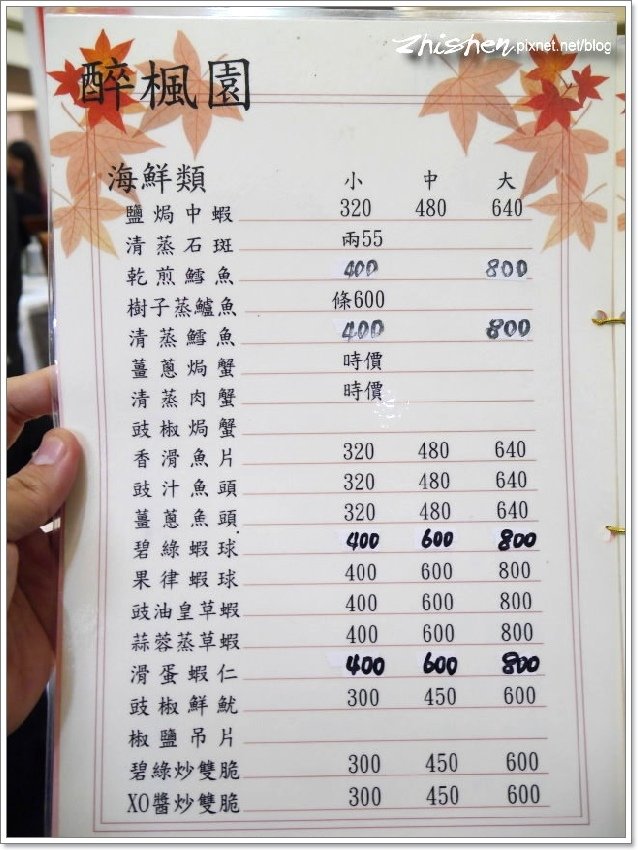 zhishen.pixnet.net/blog
醉楓園
海鮮類 小 中 大
鹽焗中蝦 320 480 640
清蒸石斑 兩55
乾煎鱈魚 400 800
樹子蒸鱸魚 條600
清蒸鱈魚 400 800
薑蔥焗蟹 時價
清蒸肉蟹 時價
豉椒焗蟹
香滑魚片 320 480 640
豉汁魚頭 320 480 640
薑蔥魚頭 320 480 640
碧綠蝦球 400 600 800
果律蝦球 400 600 800
豉油皇草蝦 400 600 800
蒜蓉蒸草蝦 400 600 800
滑蛋蝦仁 400 600 800
豉椒鮮魷 300 450 600
椒鹽吊片
碧綠炒雙脆 300 450 600
XO醬炒雙脆 300 450 600